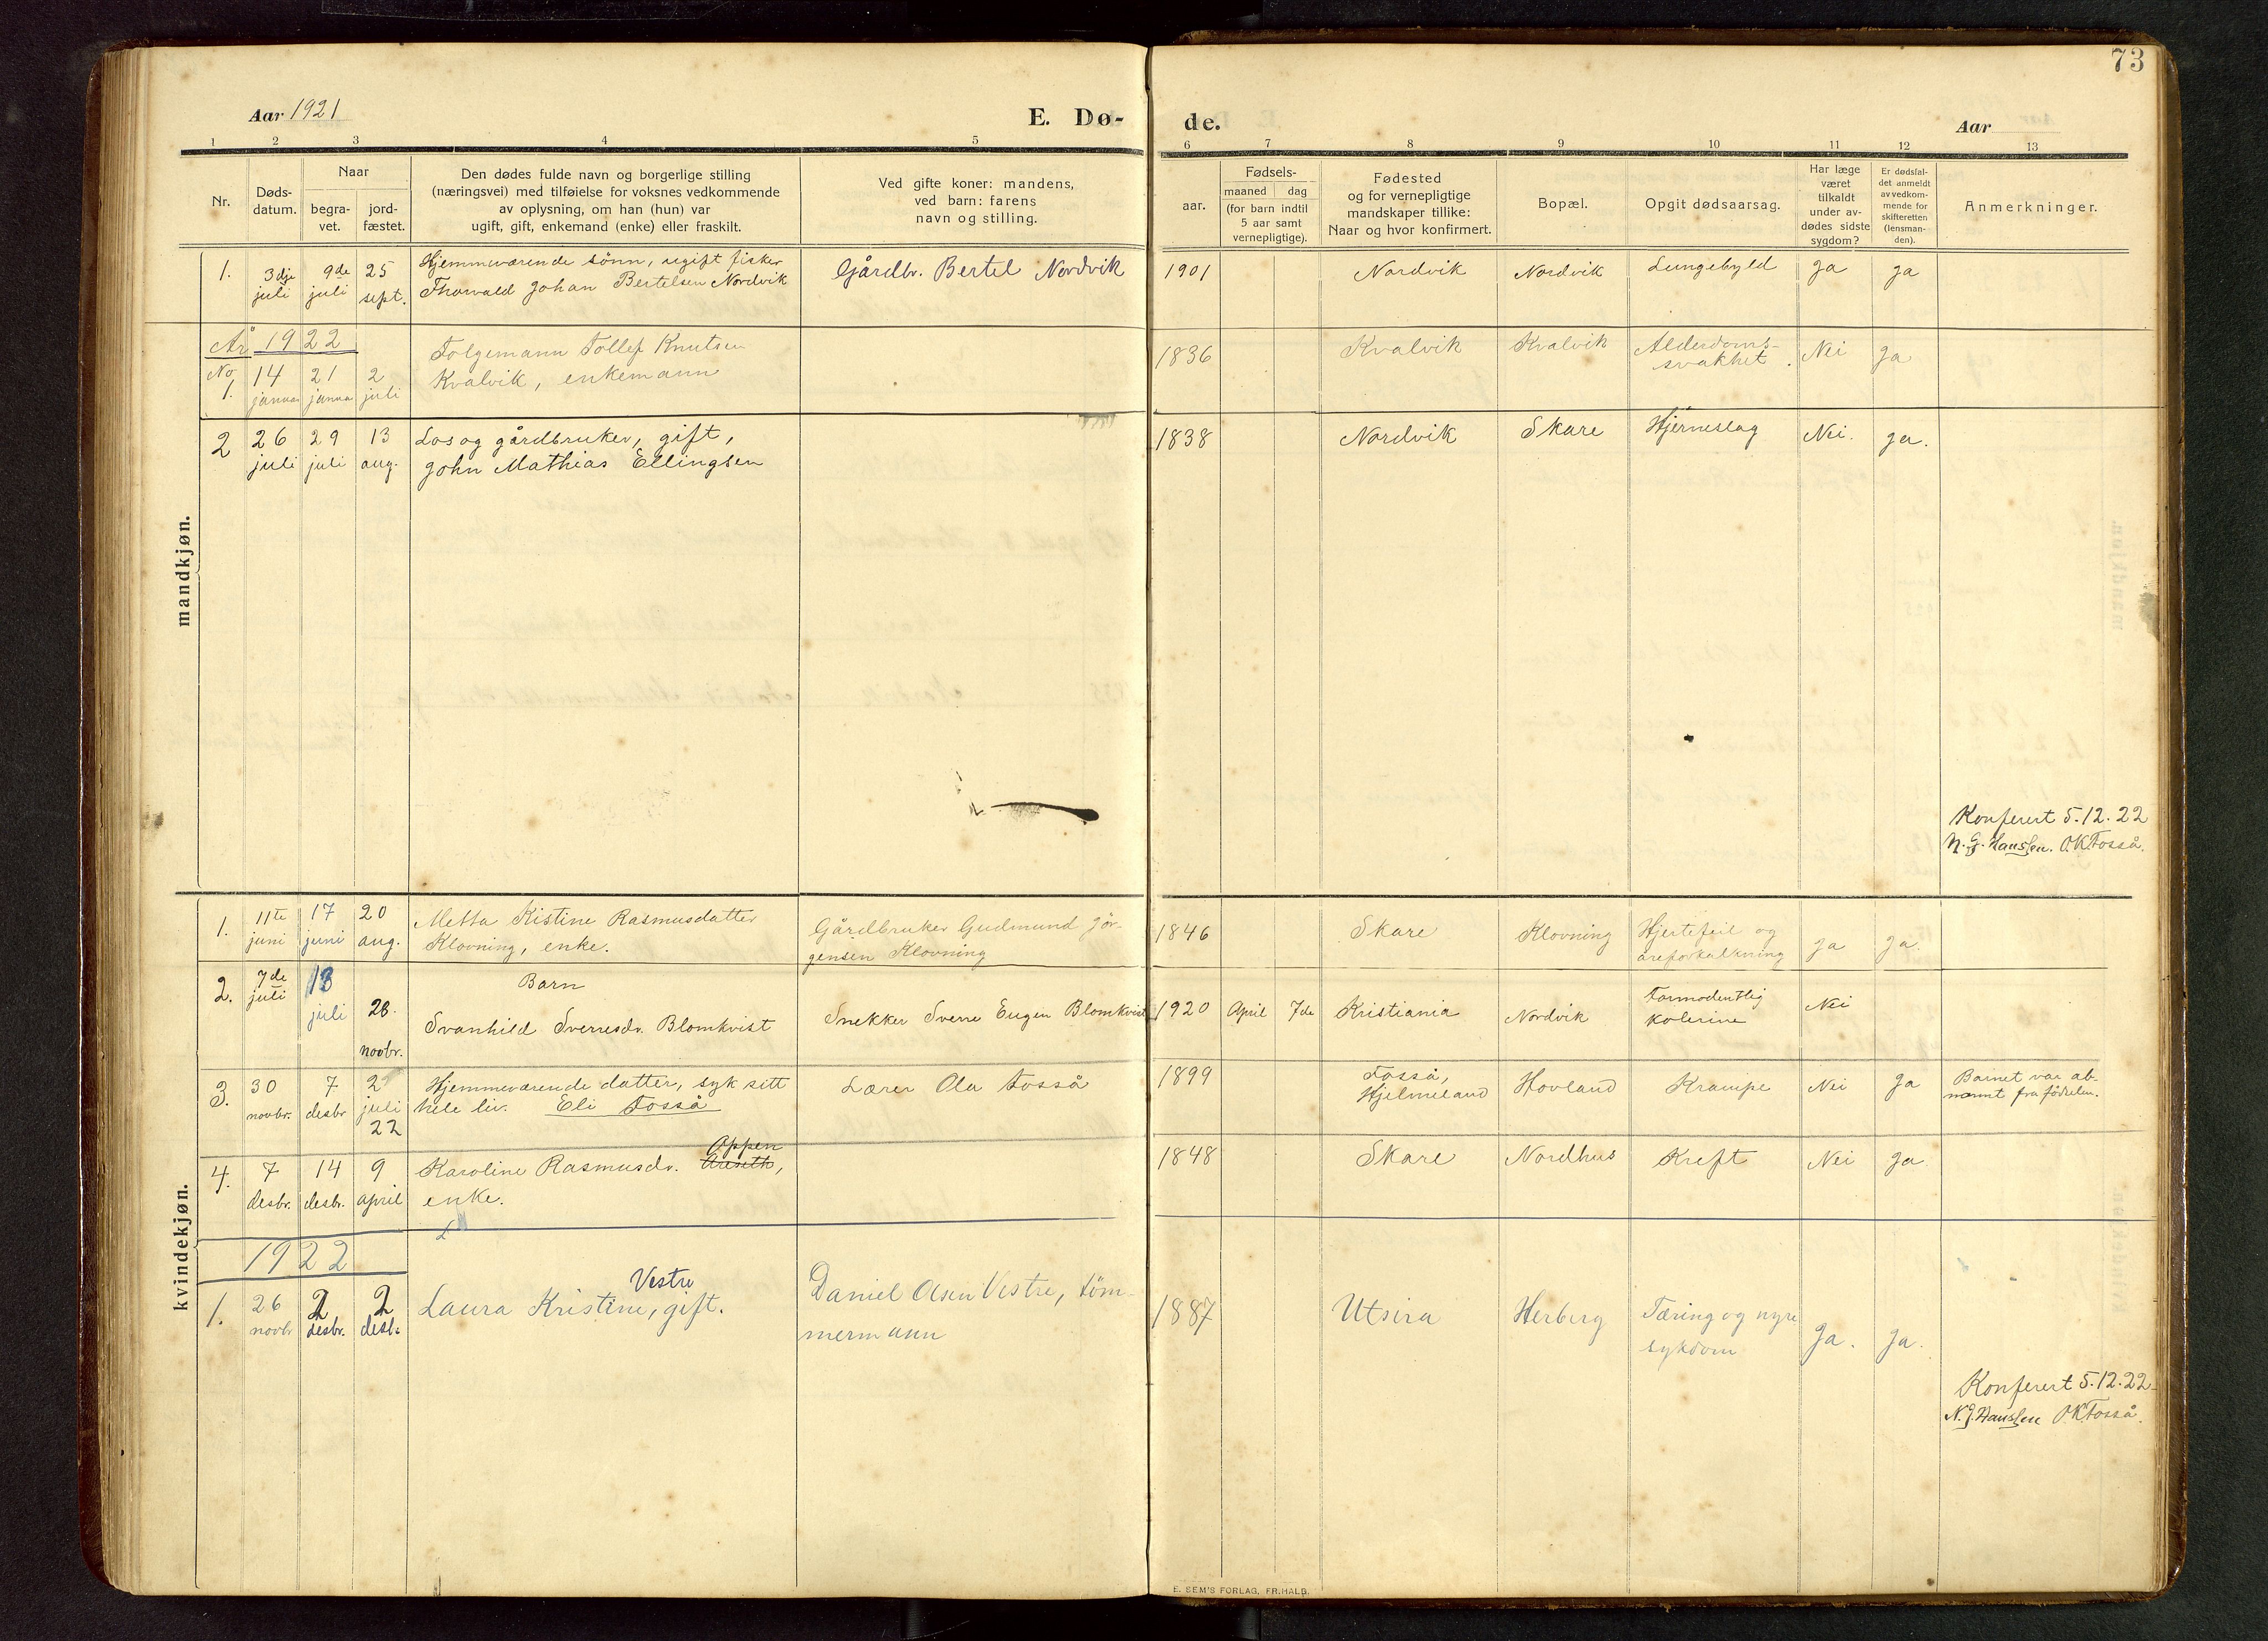 73
Aar 1921
E. Dø-
de.
Aar
1 2 3 4 5
6 7 8 9 10 11 12 13
Nr.
Døds-
datum.
Naar
begra-
vet.
jord-
fæstet.
Den dødes fulde navn og borgerlige stilling
(næringsvei) med tilføielse for voksnes vedkommende
av oplysning, om han (hun) var
ugift, gift, enkemand (enke) eller fraskilt.
Ved gifte koner: mandens,
ved barn: farens
navn og stilling.
aar.
Fødsels-
maaned dag
(for barn indtil
5 aar samt
vernepligtige).
Fødested
og for vernepligtige
mandskaper tillike:
Naar og hvor konfirmert.
Bopæl.
Opgit dødsaarsag.
Har læge
været
tilkaldt
under av-
dødes sidste
sygdom?
Er dødsfal-
det anmeldt
av vedkom-
mende for
skifteretten
(lensman-
den).
Anmerkninger.
mandkjøn.
1. 3dje juli 9de juli 25 sept.
Hjemmeværende sönn, ugift fisker
Thorvald Johan Bertelsen Nordvik
Gårdbr. Bertel Nordvik
1901 Nordvik Nordvik Lungebyld Ja Ja
År 1922
No 1. 14 januar 21 januar 2 juli
Folgemann Tollef Knutsen
Kvalvik, enkemann
1836 Kvalvik Kvalvik Alderdoms-
svakhet. Nei Ja
2 26 juli 29 juli 13 aug.
Los og gårdbruker, gift,
John Mathias Ellingsen
1838 Nordvik Skare Hjerneslag Nei. Ja.
Konferert 5.12.22
N. J. Hanssen. O.K.Fosså.
kvindekjøn.
1. 11te juni 17 juni 20 aug.
Metta Kistine Rasmusdatter
Klovning, enke.
Gårdbruker Gudmund Jör-
gensen Klovning
1846 Skare Klovning Hjertefeil og
åreforkalkning Ja Ja.
2. 7de juli 13 juli 28. novbr.
Barn
Svanhild Sverresdr. Blomkvist
Snekker Sverre Eugen Blomkvist
1920 April 7de Kristiania Nordvik Formodentlig
kolerine Nei
3. 30 novbr. 7 desbr 2 juli 22
Hjemmeværende datter, syk sitt
hele liv. Eli Fosså
Lærer Ola Fosså
1899 Fosså,
Hjelmeland Hovland Krampe Nei Ja
Barnet var ab-
normt fra födselen.
4. 7 desbr. 14 desbr. 9 april
Oppen
Karoline Rasmusdr.
enke.
1848 Skare Nordhus Kreft Nei Ja
1922
1. 26 novbr 2 desbr. 2 desbr.
Vestre
Laura Kristine, gift.
Daniel Olsen Vestre, töm-
mermann
1887 Utsira Herberg Tæring og nyre
sykdom Ja. Ja.
Konferert 5.12.22
N. J. Hanssen O.K.Fosså.
E. SEM'S FORLAG, FR.HALD.